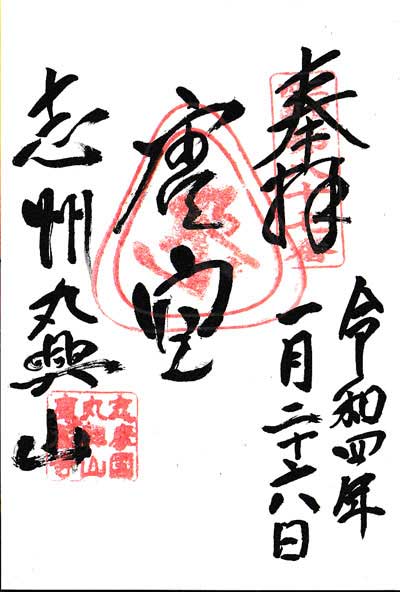 奉拝
令和四年
一月二十六日
虚空
志州丸興山